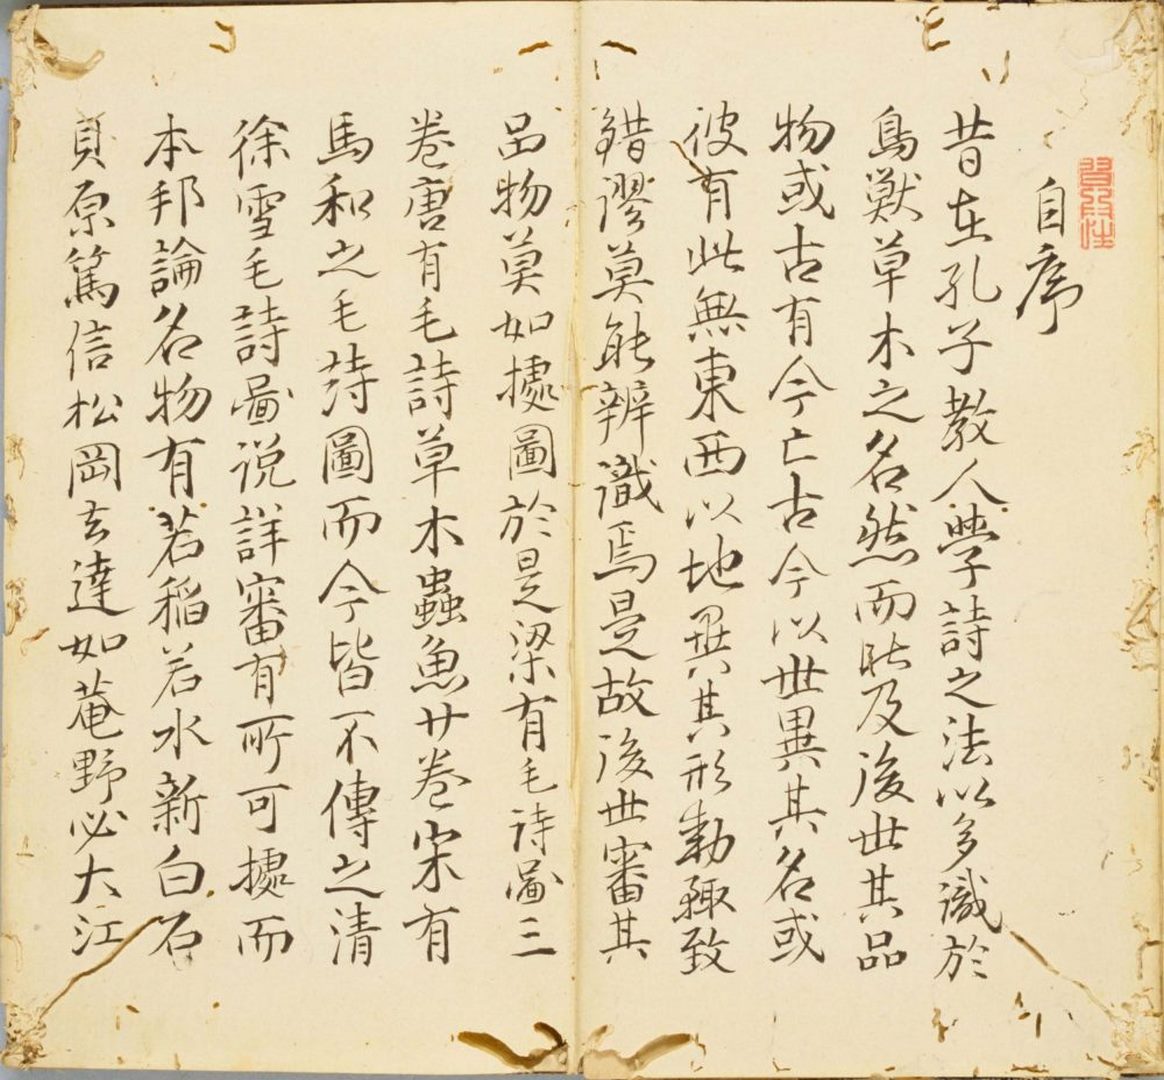 自序
昔在孔子教人學詩之法以多識於
鳥獸草木之名然而能及後世其品
物或古有今亡古今以世異其名或
彼有此無東西以地異其形動輙致
錯謬莫能辨識焉是故後世審其
品物莫如據圖於是梁有毛诗啚三
卷唐有毛詩草木蟲魚廿卷宋有
馬和之毛詩圖而今皆不傳之清
徐雪毛詩啚说詳審有所可據而
本邦論名物有若稲若水新白石
貝原篤信松岡玄達如菴野必大江